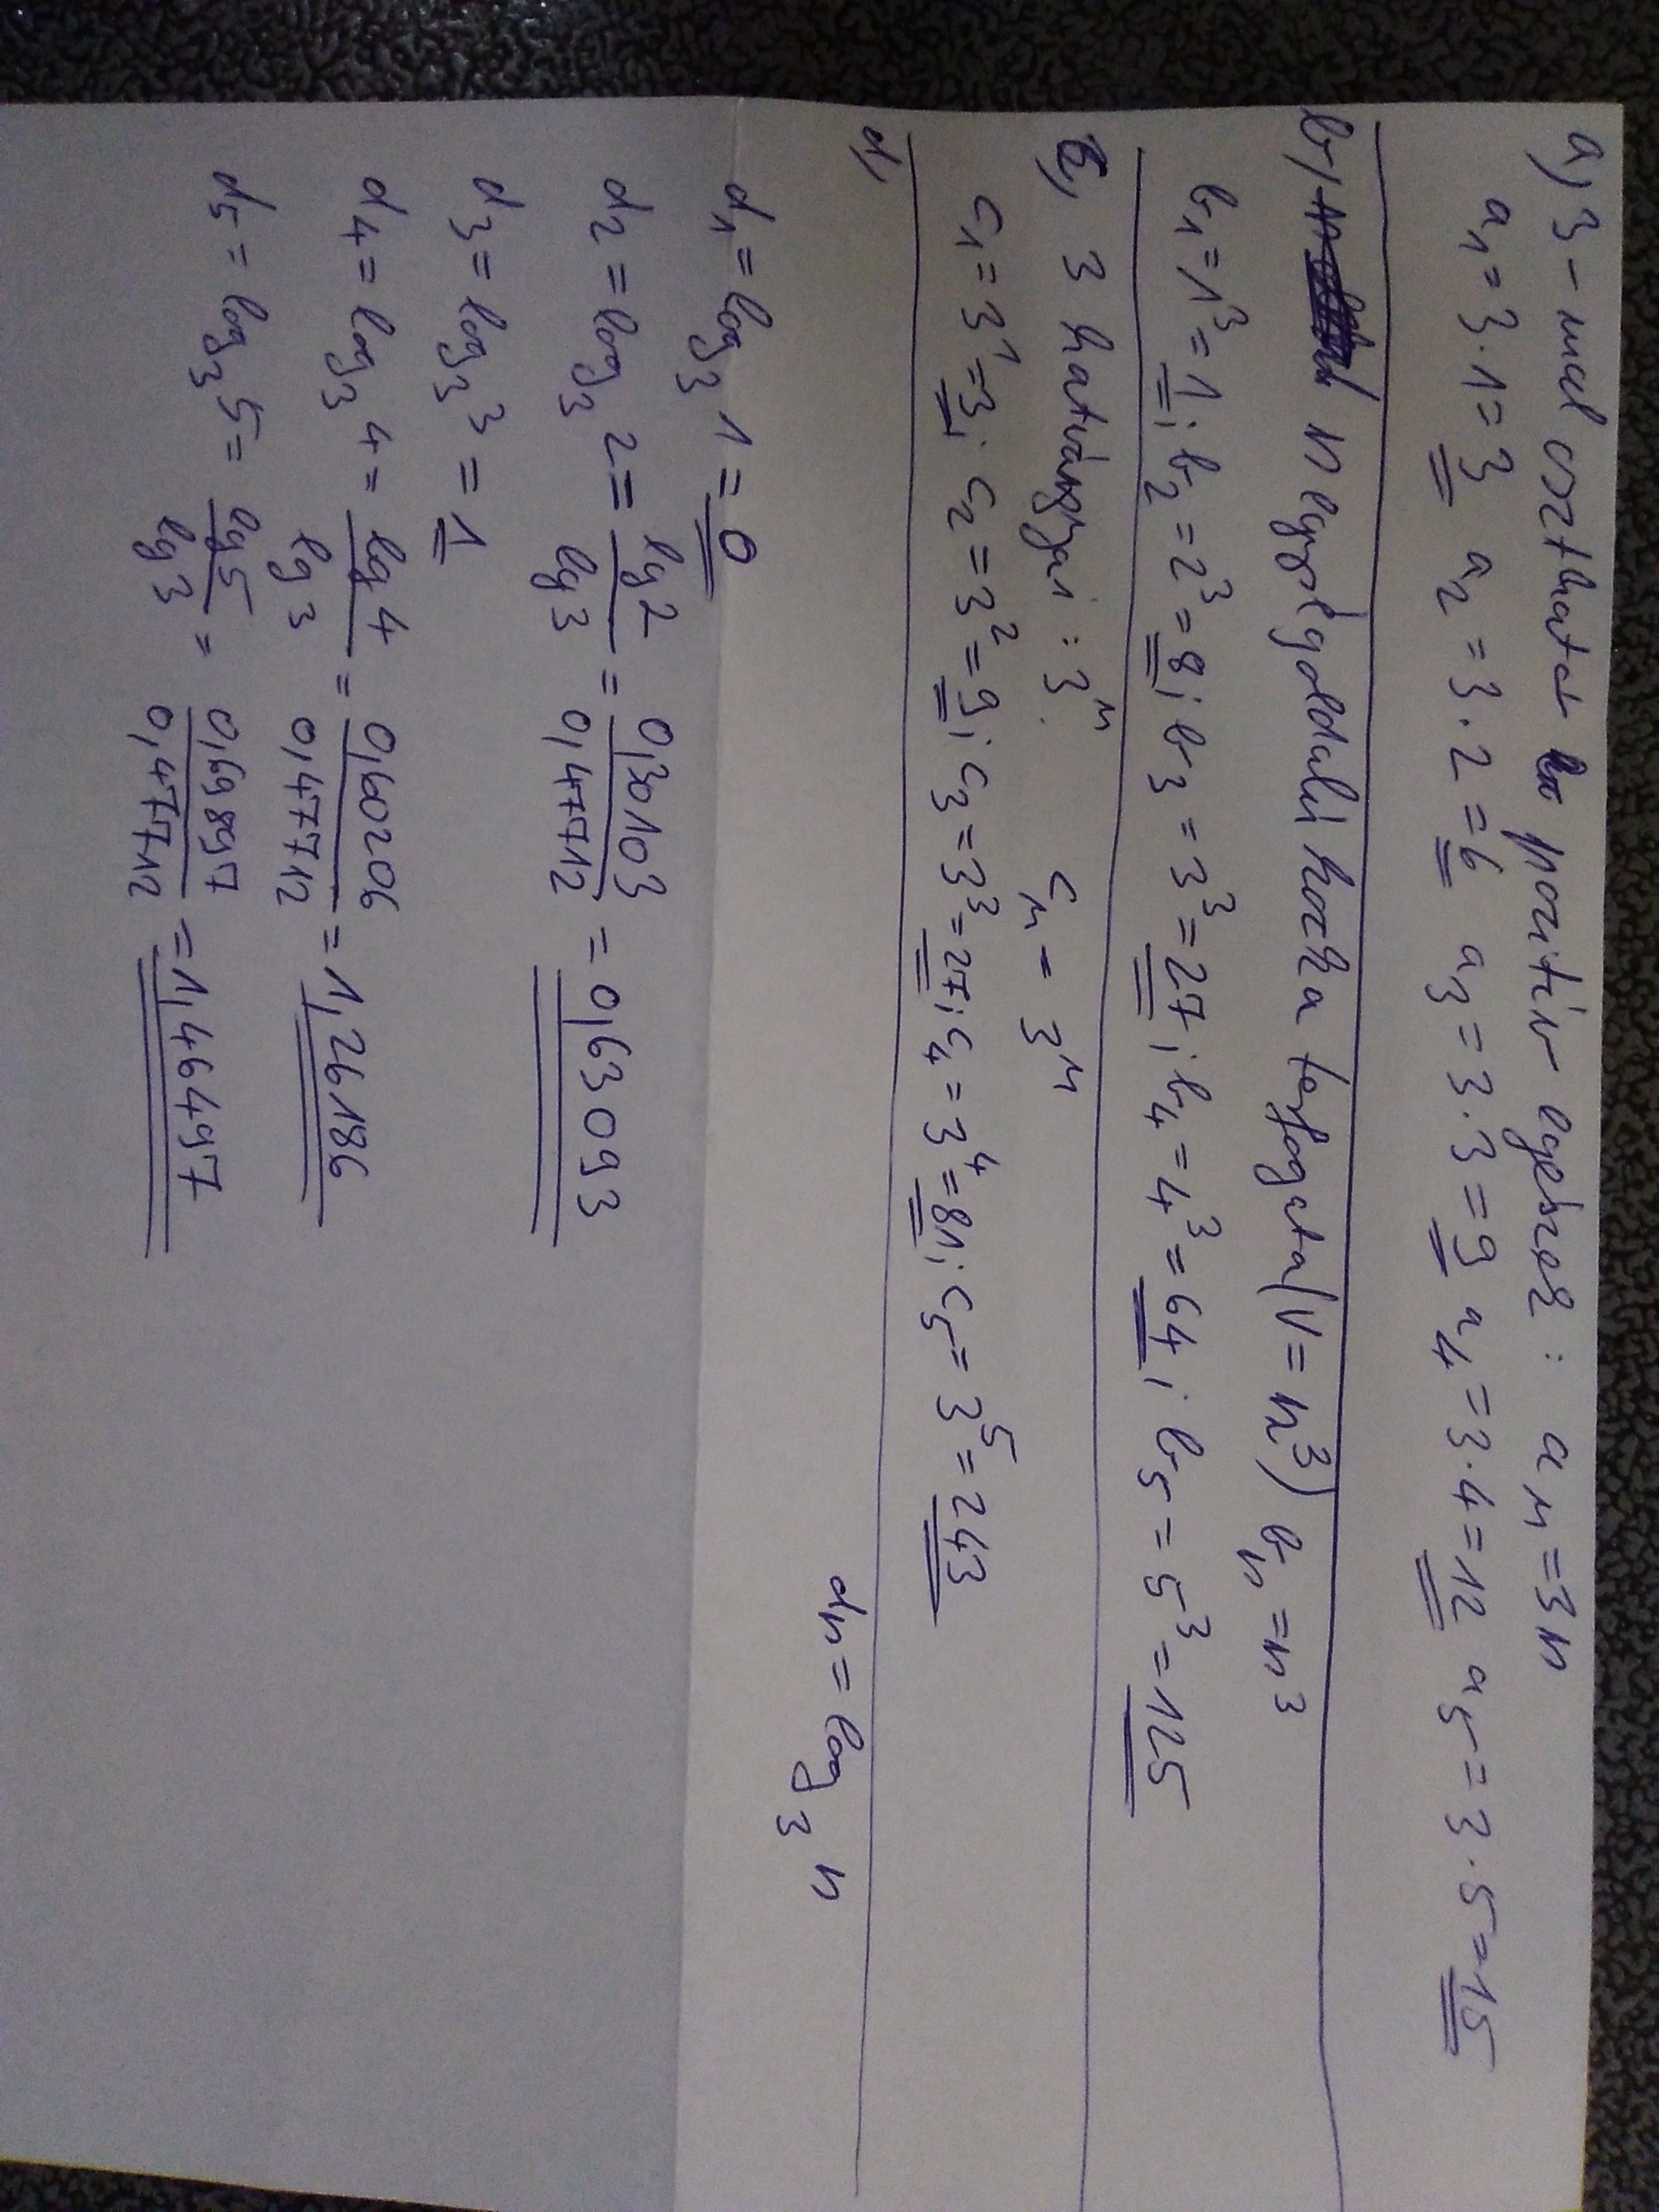 a, 3-mal osztható pozitív egészek: aₙ=3n
a₁=3·1=3 a₂=3·2=6 a₃=3·3=9 a₄=3·4=12 a₅=3·5=15
b, n egység oldalú kocka térfogata (V=n³) bₙ=n³
b₁=1³=1; b₂=2³=8; b₃=3³=27; b₄=4³=64; b₅=5³=125
c, 3 hatványai: 3ⁿ. cₙ=3ⁿ
c₁=3¹=3; c₂=3²=9; c₃=3³=27; c₄=3⁴=81; c₅=3⁵=243
d, dₙ=log₃ n
d₁=log₃ 1=0
d₂=log₃ 2=lg2/lg3=0,30103/0,47712=0,63093
d₃=log₃ 3=1
d₄=log₃ 4=lg4/lg3=0,60206/0,47712=1,26186
d₅=log₃ 5=lg5/lg3=0,69897/0,47712=1,46497